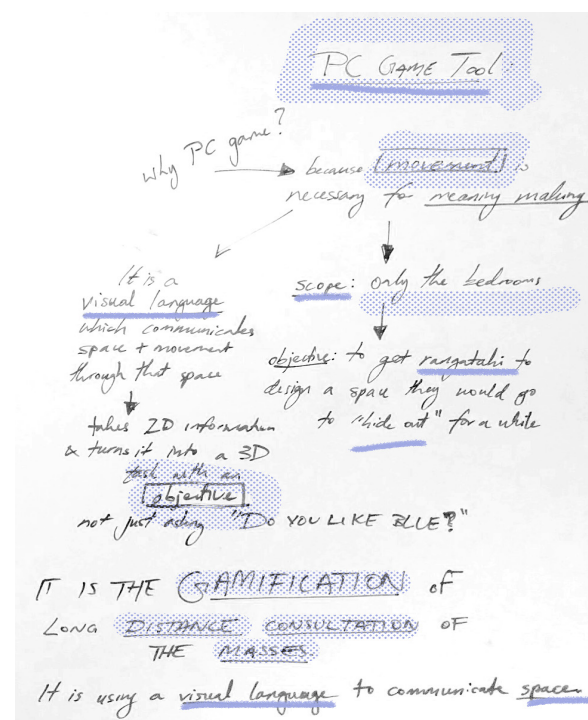 PC GAME Tool
why PC game?
because movement is
necessary for meaning making
It is a
visual language
which communicates
space + movement
through that space
takes 2D information
& turns it into a 3D
task with an
objective
not just asking "DO YOU LIKE BLUE?"
scope: only the bedrooms
objective: to get rangatahi to
design a space they would go
to "hide out" for a while
IT IS THE GAMIFICATION OF
LONG DISTANCE CONSULTATION OF
THE MASSES
It is using a visual language to communicate space